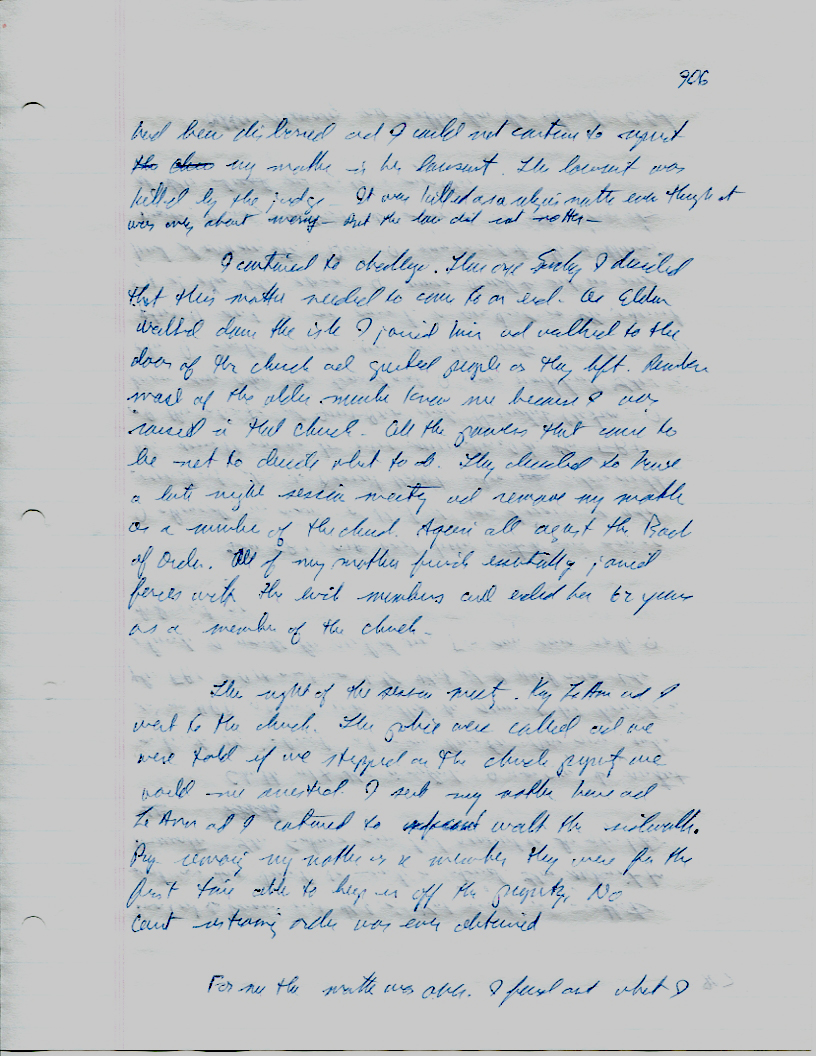 906
had been disbarred and I could not continue to represent
my mother in her lawsuit. The lawsuit was
killed by the judge. It was killed as a religious matter even though it
was only about money - But the law did not matter -
I continued to challenge. Then one Sunday I decided
that this matter needed to come to an end. As Elder
walked down the isle I joined him and walked to the
door of the church and greeted people as they left. Remember
most of the older members knew me because I was
raised in that church. All the powers that came to
be met to decide what to do. They decided to have
a late night session meeting and remove my mother
as a member of the church. Again all against the Book
of Order. All of my mother friends essentially joined
forces with the evil members and ended her 62 years
as a member of the church -
The night of the session meeting. Kay LeAnn and I
went to the church. The police were called and we
were told if we stepped on the church property we
would arrested. I sent my mother home and
LeAnn and I continued to walk the sidewalk.
By removing my mother as a member they were for the
first time able to keep us off the property. No
court restraining order was ever obtained
For me the matter was over. I found out what I